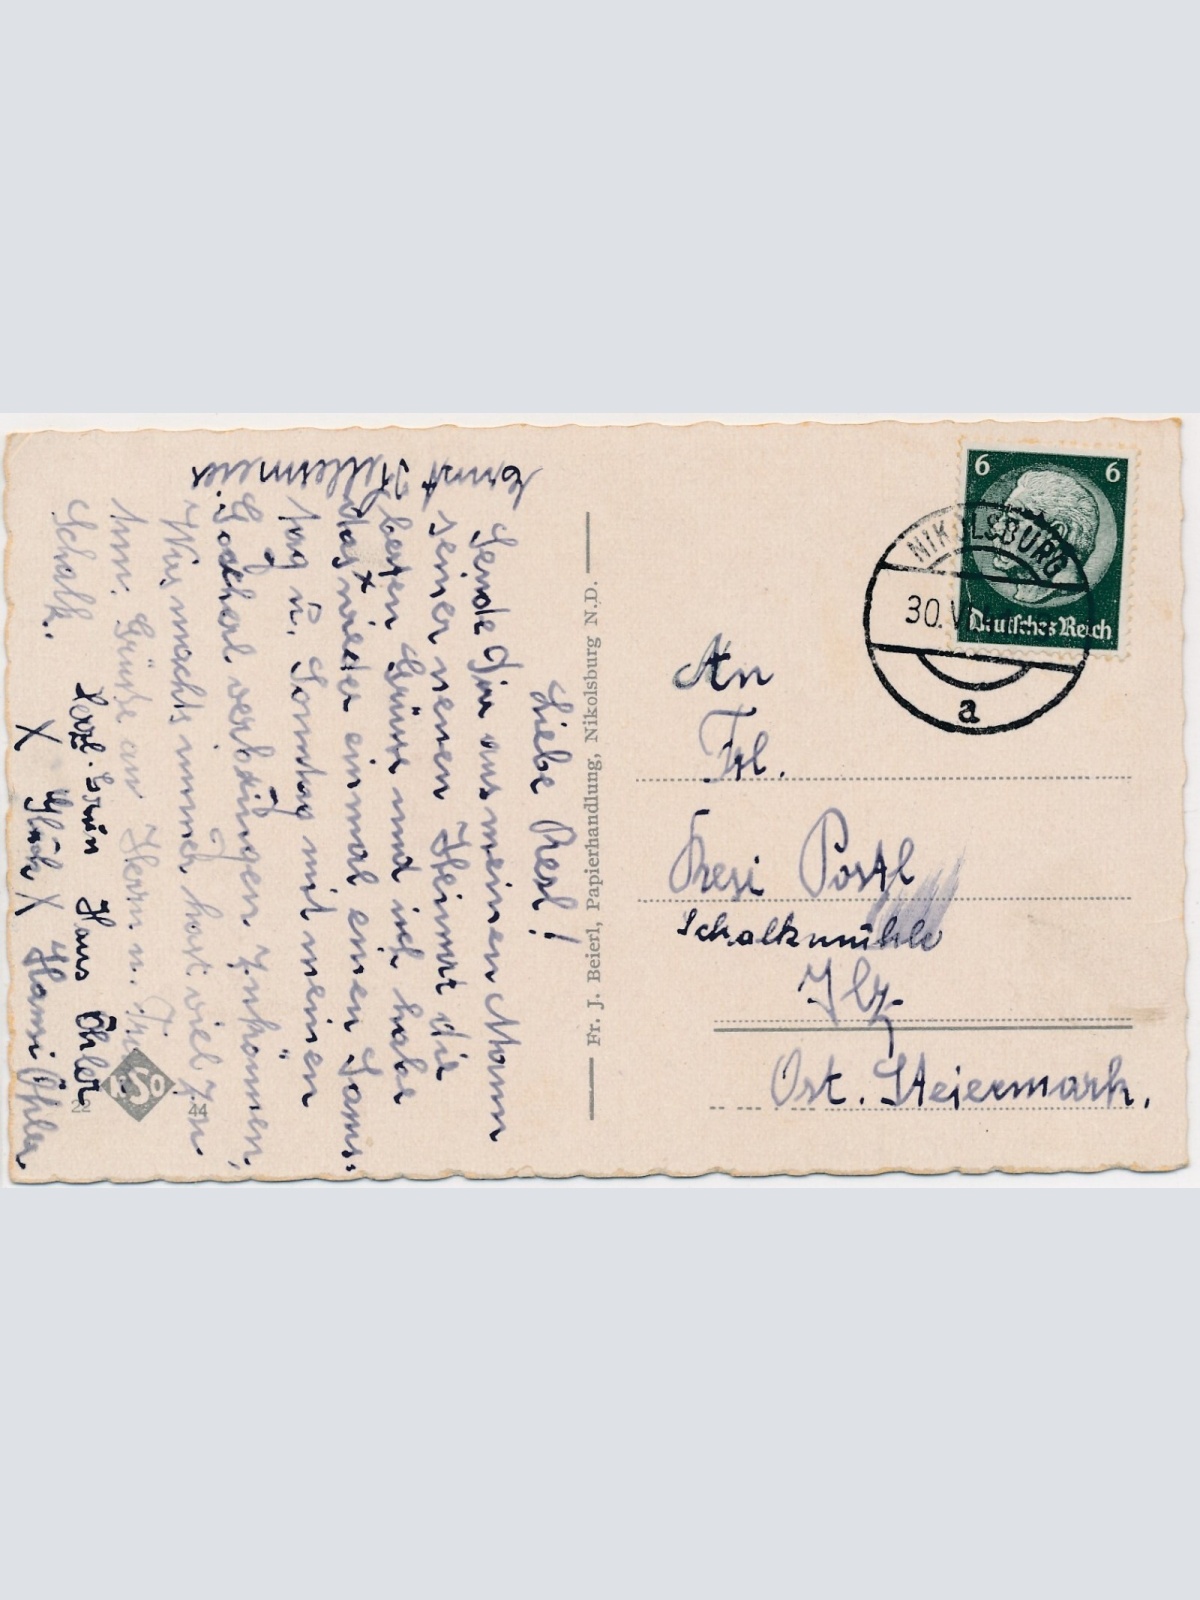 Liebe Resl!
Sende Dir aus meinen Mann
seiner neuen Heimat die
besten Grüsse und ich habe
das wieder einmal einen Sams-
tag u. Sonntag mit meinen
verbringen können.
Wie machts immer hast viel zu
tun. Grüsse an Herrn u.
Schalk.
Herzl. Hans Öhler
X X Hanni Öhler
Ernst
Fr. J. Beierl, Papierhandlung, Nikolsburg N.D.
22 44
KSO
6 6
Deutsches Reich
NIKOLSBURG
30.V
a
An
Frl.
Resi Postl
Schalkmühle
Ilz
Ost. Steiermark.